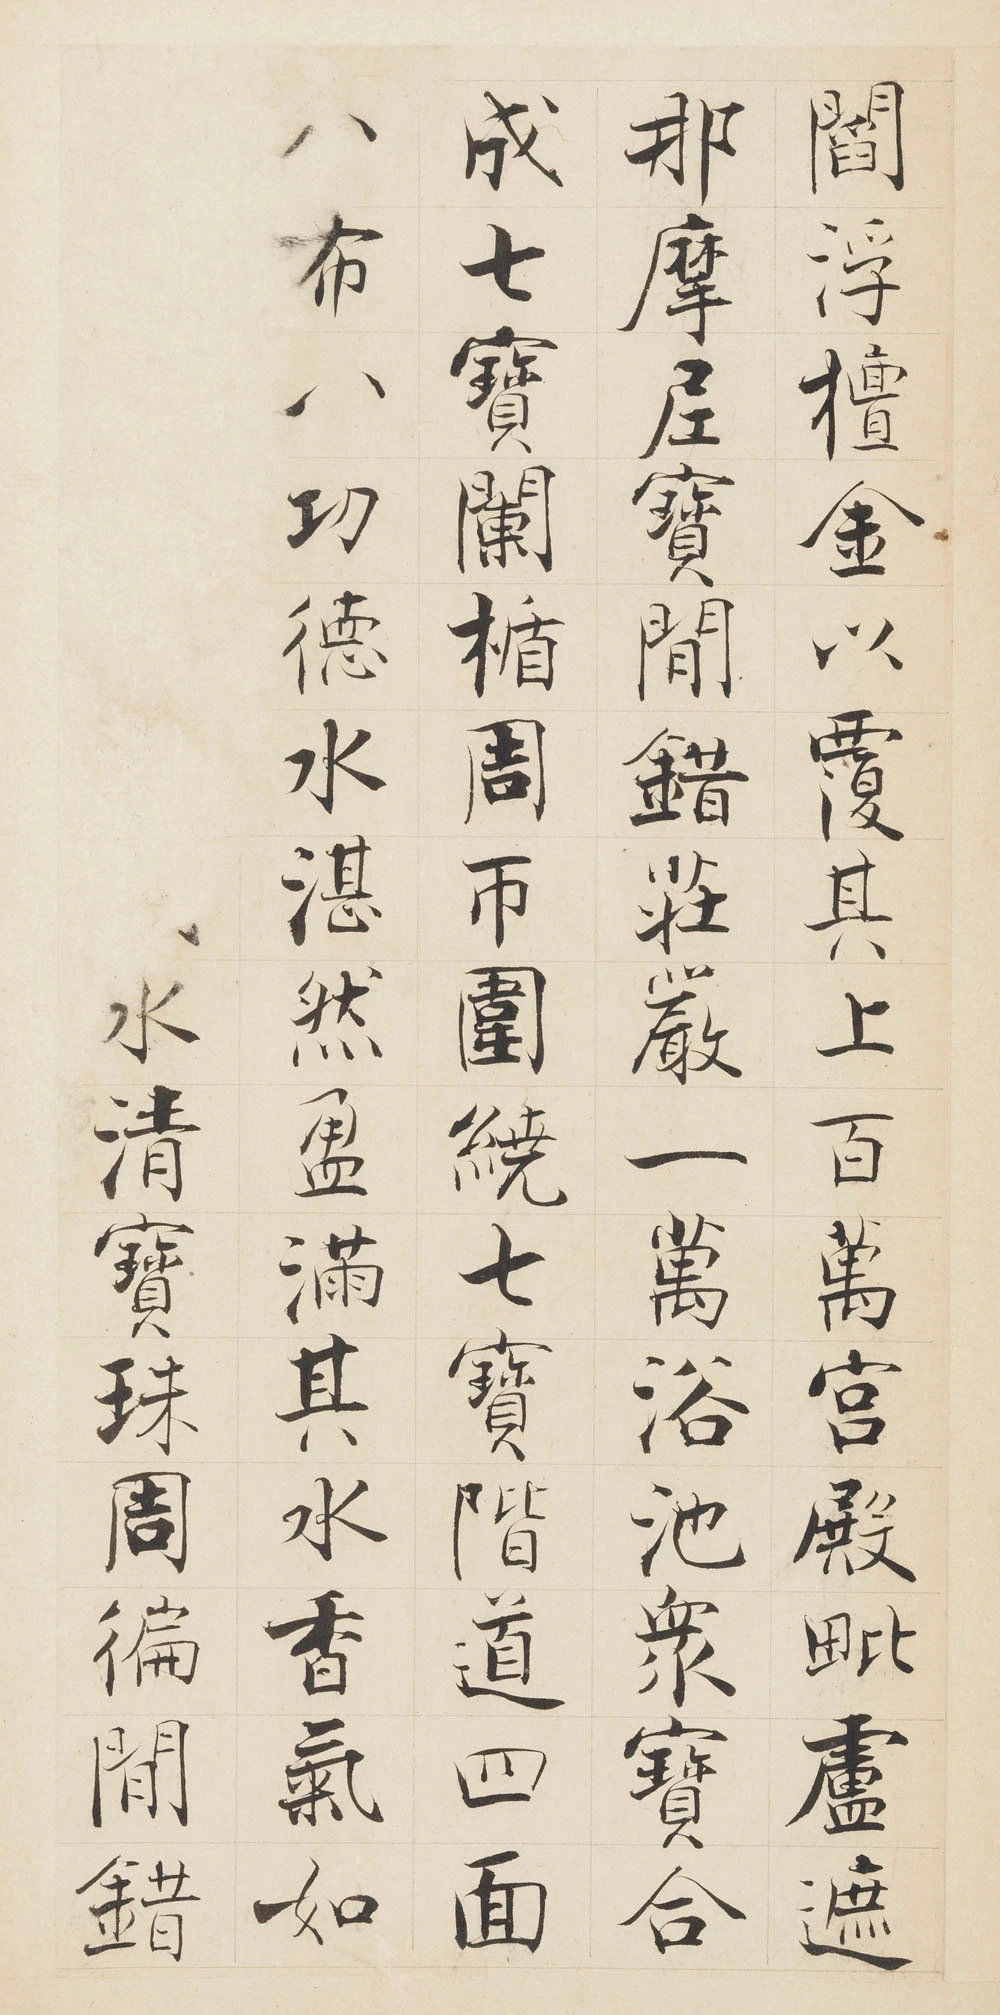 閻浮檀金以覆其上百萬宮殿毗盧遮
那摩尼寶間錯莊嚴一萬浴池衆寶合
成七寶闌楯周帀圍繞七寶階道四面
八布八功德水湛然盈滿其水香氣如
水清寶珠周徧間錯